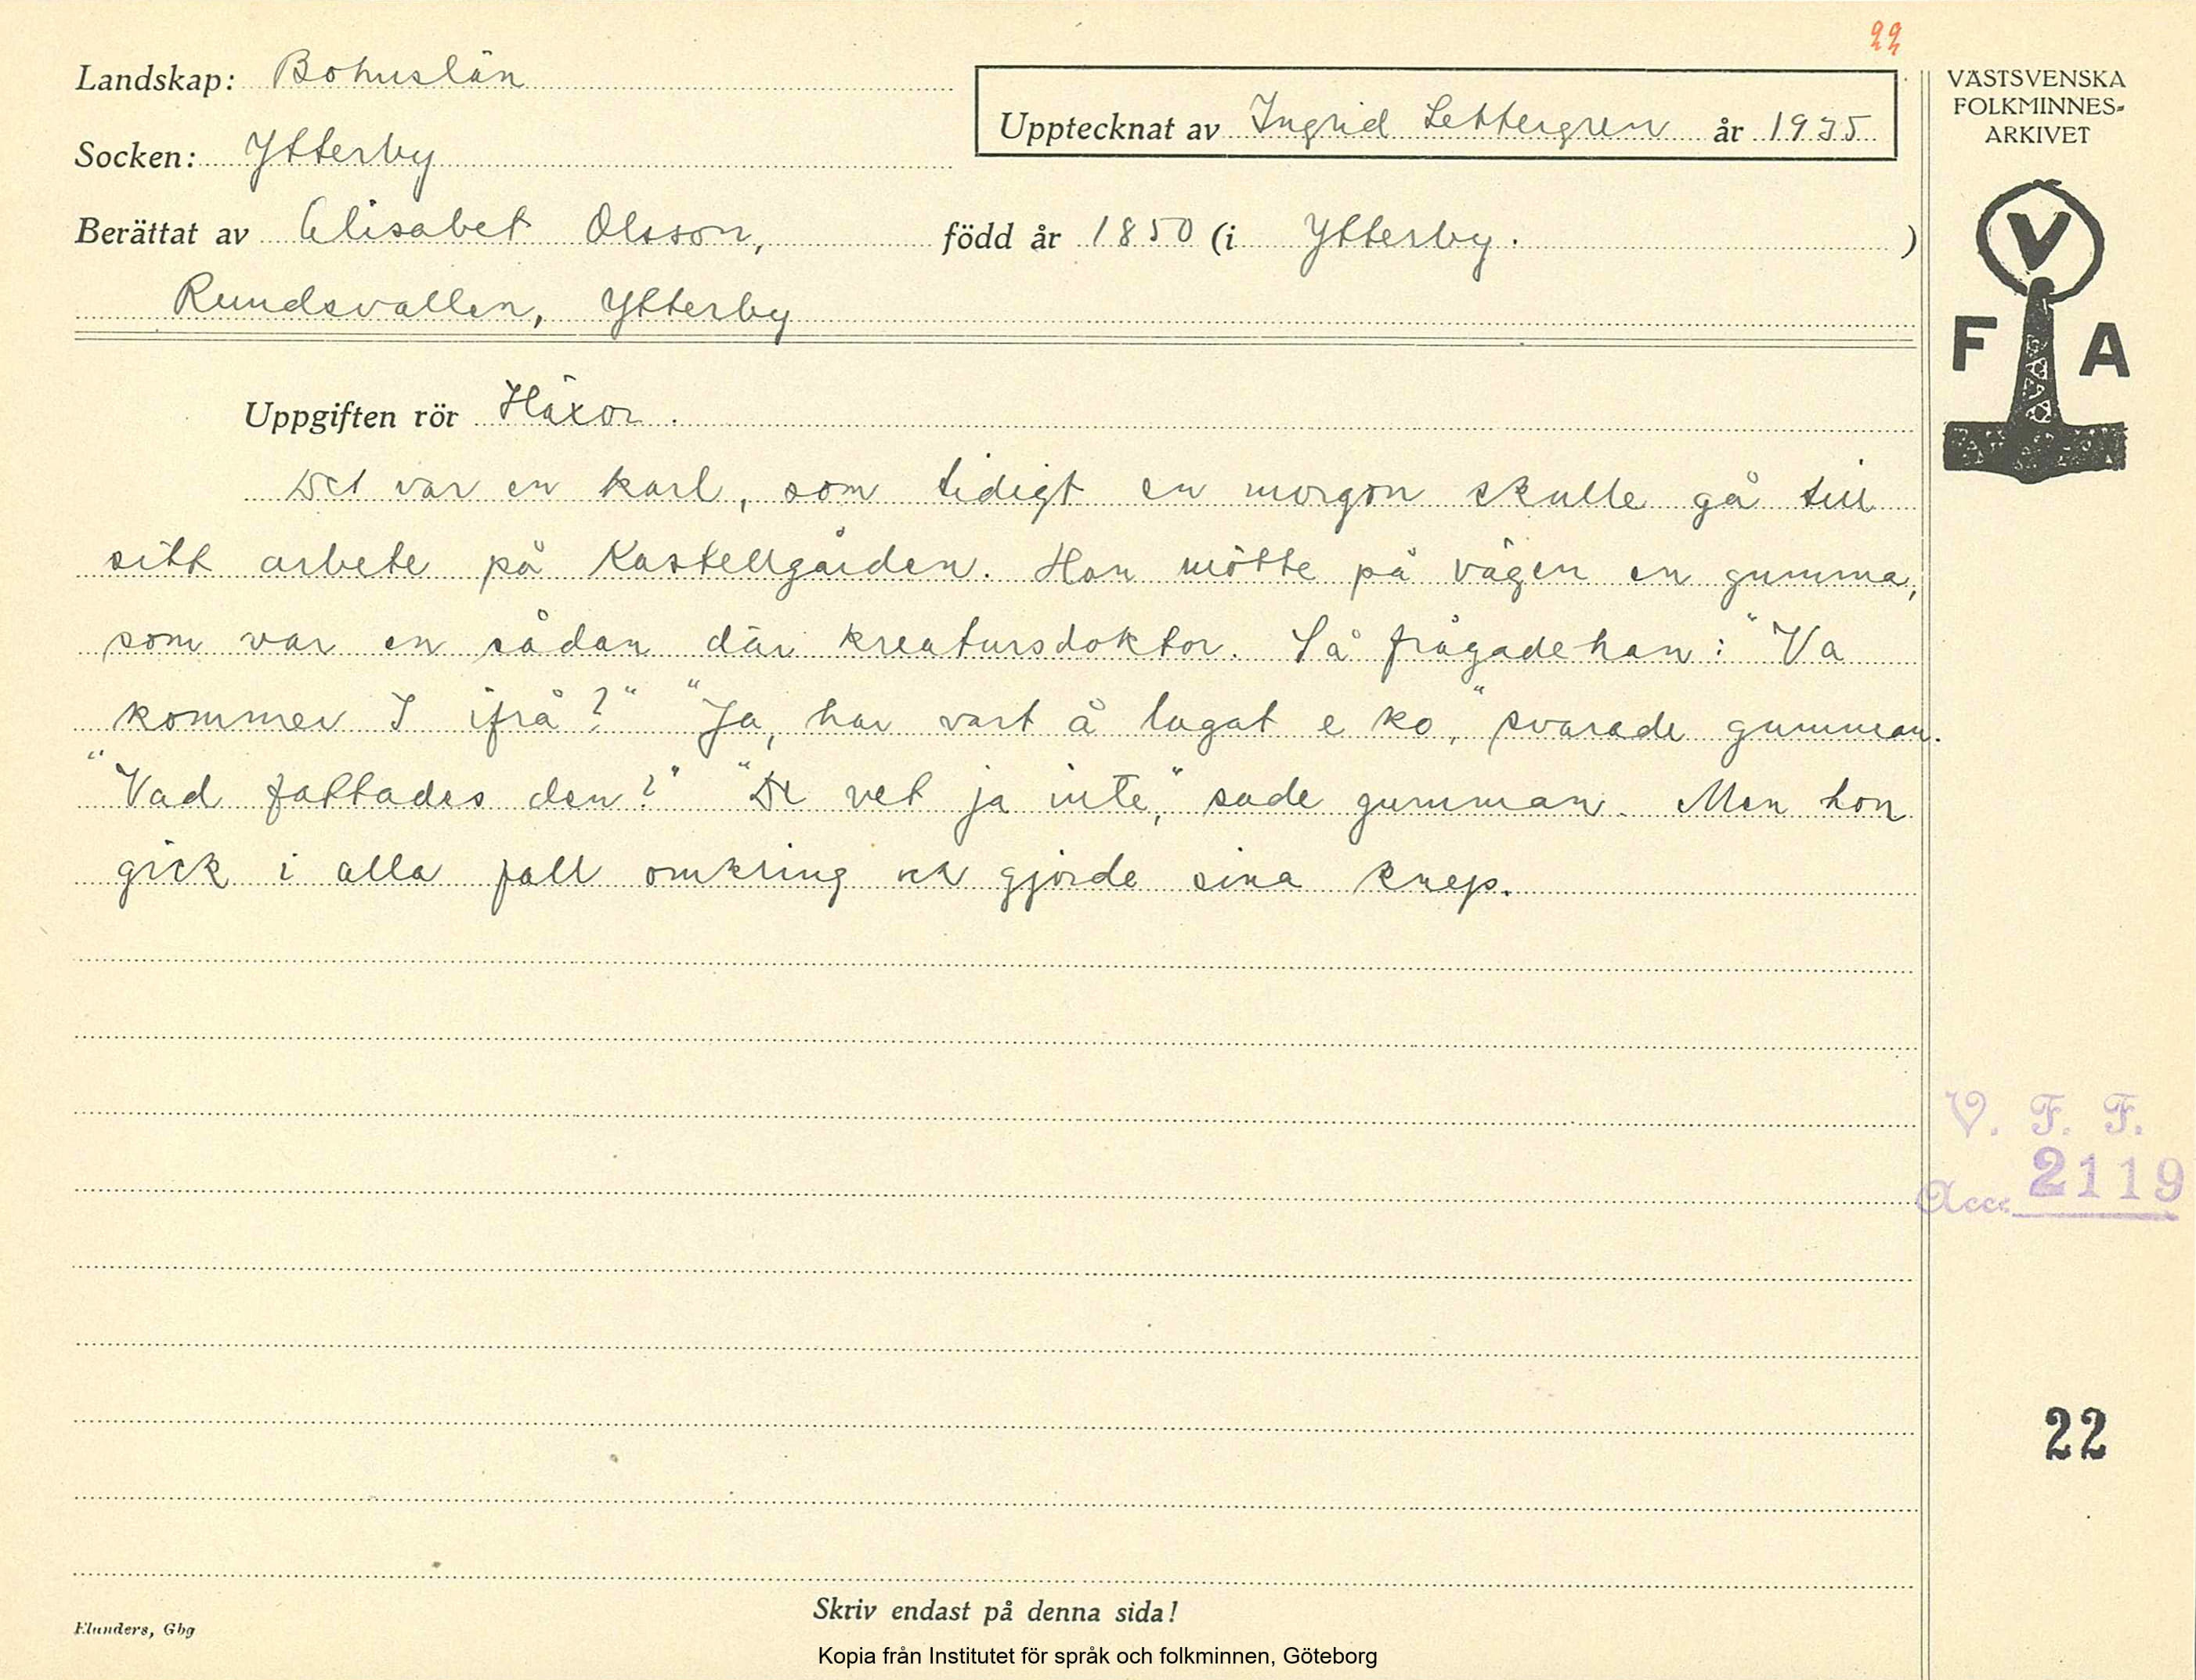 22
Landskap: Bohuslän
Upptecknat av Ingrid Settergren år 1935
Socken: Ytterby
Berättat av Elisabet Olsson, född år 1850 (i Ytterby. )
Rundsvallen, Ytterby
VÄSTSVENSKA
FOLKMINNES-
ARKIVET
V
F A
Uppgiften rör Häxor.
Det var en karl, som tidigt en morgon skulle gå till
sitt arbete på Kastellgården. Han mötte på vägen en gumma,
som var en sådan där kreatursdoktor. Så frågade han: "Va
kommer I ifrå?" "Ja, har vart å lagat e ko," svarade gumman.
"Vad fattades den?" "De vet ja inte," sade gumman. Men hon
gick i alla fall omkring och gjorde sina knep.
V. F. F.
Acc. 2119
22
Skriv endast på denna sida!
Elanders, Gbg
Kopia från Institutet för språk och folkminnen, Göteborg